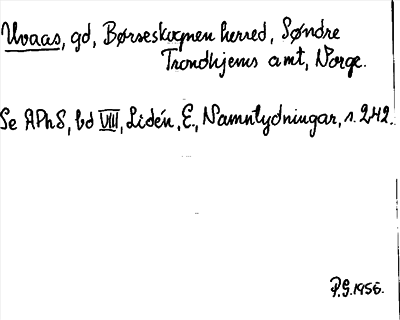 Uvaas, gd, Børseskognen herred, Søndre
Trondhjems amt, Norge.
Se APhS, bd VIII, Lidén, E., Namntydningar, s. 242.
P.G. 1956.